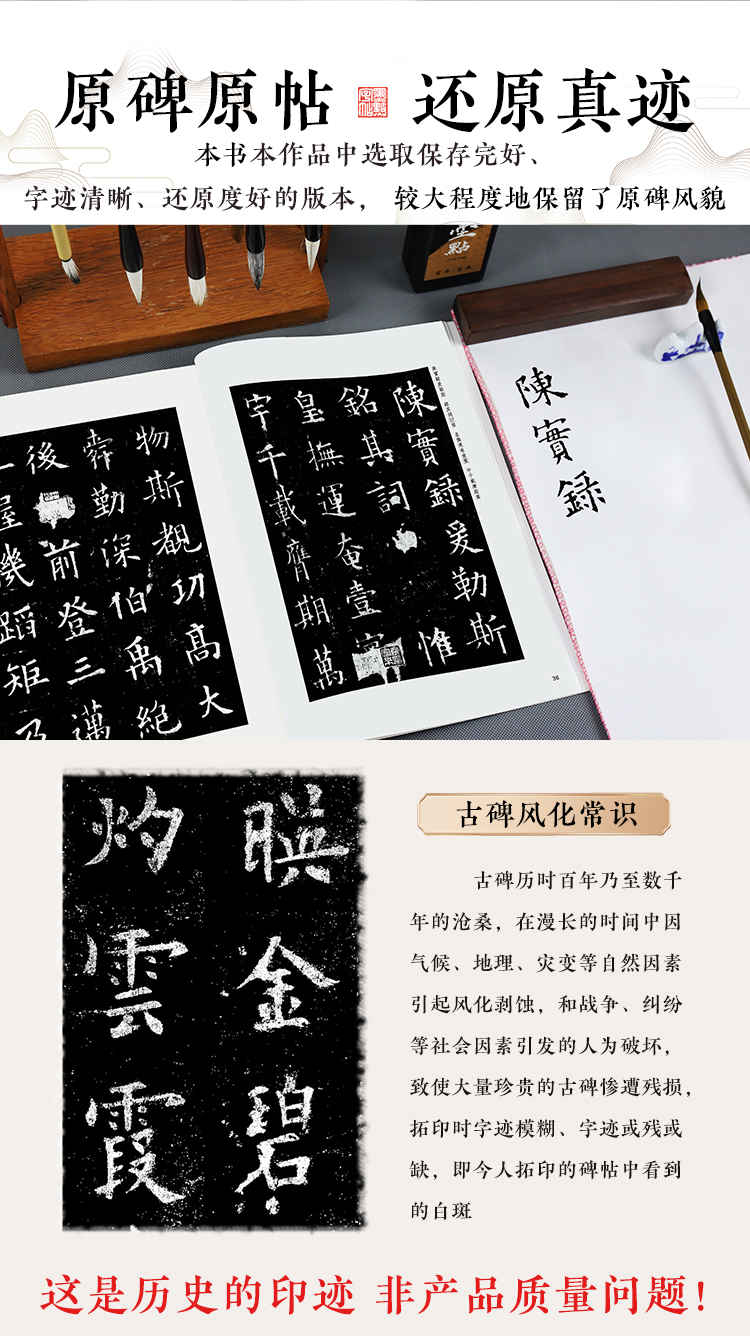 原碑原帖 还原真迹
本书本作品中选取保存完好、
字迹清晰、还原度好的版本， 较大程度地保留了原碑风貌
陳實録爰勒斯
銘其詞 惟
皇撫運奄壹寰
宇千載膺期萬
物斯覩功高大
舜勤深伯禹絶
後 前登三邁
陳實録
36
暎金碧
灼雲霞
古碑风化常识
古碑历时百年乃至数千
年的沧桑，在漫长的时间中因
气候、地理、灾变等自然因素
引起风化剥蚀，和战争、纠纷
等社会因素引发的人为破坏，
致使大量珍贵的古碑惨遭残损，
拓印时字迹模糊、字迹或残或
缺，即今人拓印的碑帖中看到
的白斑
这是历史的印迹 非产品质量问题！